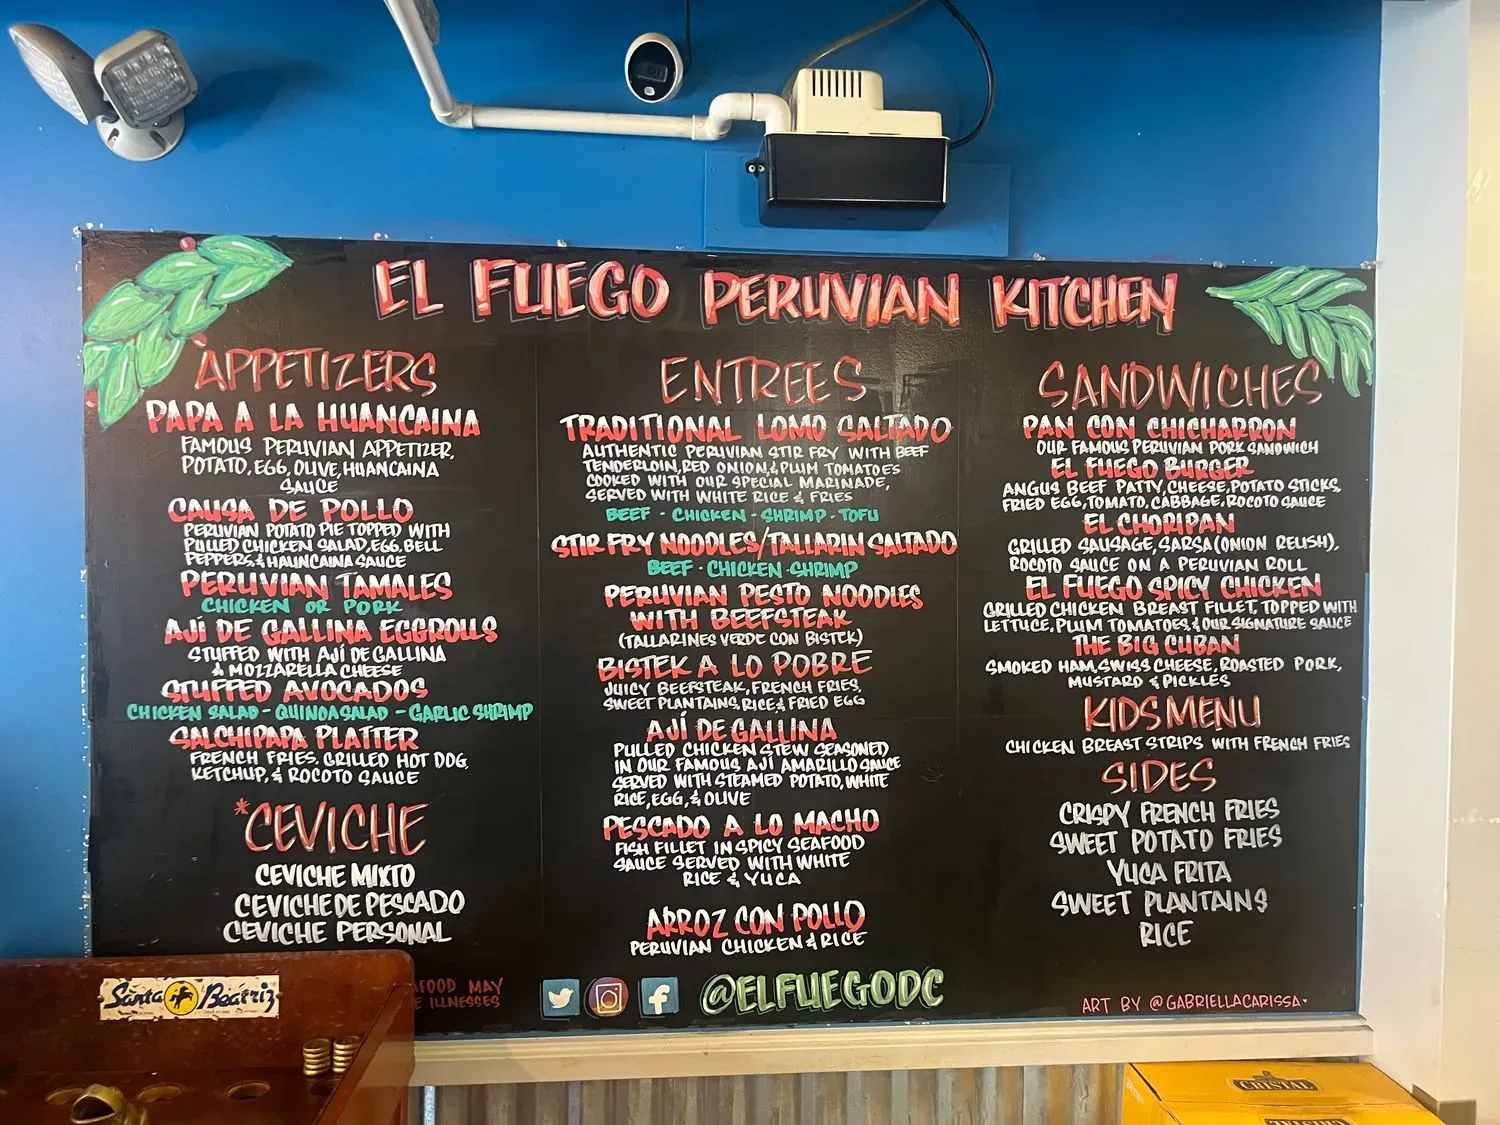 EL FUEGO PERUVIAN KITCHEN
APPETIZERS
PAPA A LA HUANCAINA
FAMOUS PERUVIAN APPETIZER,
POTATO, EGG, OLIVE, HUANCAINA
SAUCE
CAUSA DE POLLO
PERUVIAN POTATO PIE TOPPED WITH
PULLED CHICKEN SALAD, EGG, BELL
PEPPERS, & HAUNCAINA SAUCE
PERUVIAN TAMALES
CHICKEN OR PORK
AJÍ DE GALLINA EGGROLLS
STUFFED WITH AJÍ DE GALLINA
& MOZZARELLA CHEESE
STUFFED AVOCADOS
CHICKEN SALAD - QUINOA SALAD - GARLIC SHRIMP
SALCHIPAPA PLATTER
FRENCH FRIES, GRILLED HOT DOG,
KETCHUP, & ROCOTO SAUCE
*CEVICHE
CEVICHE MIXTO
CEVICHE DE PESCADO
CEVICHE PERSONAL
FOOD MAY
ILLNESSES
ENTREES
TRADITIONAL LOMO SALTADO
AUTHENTIC PERUVIAN STIR FRY WITH BEEF
TENDERLOIN, RED ONION, & PLUM TOMATOES
COOKED WITH OUR SPECIAL MARINADE,
SERVED WITH WHITE RICE & FRIES
BEEF - CHICKEN - SHRIMP - TOFU
STIR FRY NOODLES/TALLARIN SALTADO
BEEF - CHICKEN - SHRIMP
PERUVIAN PESTO NOODLES
WITH BEEFSTEAK
(TALLARINES VERDE CON BISTEK)
BISTEK A LO POBRE
JUICY BEEFSTEAK, FRENCH FRIES,
SWEET PLANTAINS, RICE & FRIED EGG
AJÍ DE GALLINA
PULLED CHICKEN STEW SEASONED
IN OUR FAMOUS AJÍ AMARILLO SAUCE
SERVED WITH STEAMED POTATO, WHITE
RICE, EGG, & OLIVE
PESCADO A LO MACHO
FISH FILLET IN SPICY SEAFOOD
SAUCE SERVED WITH WHITE
RICE & YUCA
ARROZ CON POLLO
PERUVIAN CHICKEN & RICE
@ELFUEGODC
SANDWICHES
PAN CON CHICHARRON
OUR FAMOUS PERUVIAN PORK SANDWICH
EL FUEGO BURGER
ANGUS BEEF PATTY, CHEESE, POTATO STICKS,
FRIED EGG, TOMATO, CABBAGE, ROCOTO SAUCE
EL CHORIPAN
GRILLED SAUSAGE, SARSA (ONION RELISH),
ROCOTO SAUCE ON A PERUVIAN ROLL
EL FUEGO SPICY CHICKEN
GRILLED CHICKEN BREAST FILLET, TOPPED WITH
LETTUCE, PLUM TOMATOES, & OUR SIGNATURE SAUCE
THE BIG CUBAN
SMOKED HAM, SWISS CHEESE, ROASTED PORK,
MUSTARD & PICKLES
KIDS MENU
CHICKEN BREAST STRIPS WITH FRENCH FRIES
SIDES
CRISPY FRENCH FRIES
SWEET POTATO FRIES
YUCA FRITA
SWEET PLANTAINS
RICE
ART BY @GABRIELLACARISSA
Santa Beatriz
CRISTAL